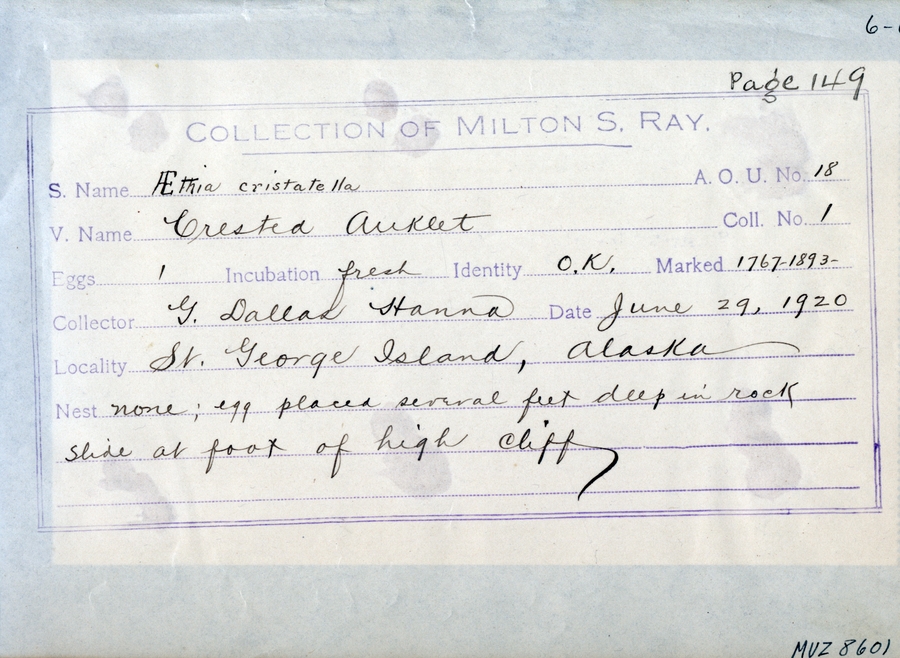 6-
Page 149
COLLECTION OF MILTON S. RAY.
S. Name Æthia cristatella A. O. U. No. 18
V. Name Crested Auklet Coll. No. 1
Eggs 1 Incubation fresh Identity O.K. Marked 1767-1893-
Collector G. Dallas Hanna Date June 29, 1920
Locality St. George Island, Alaska
Nest none; egg placed several feet deep in rock
slide at foot of high cliff
MVZ 8601